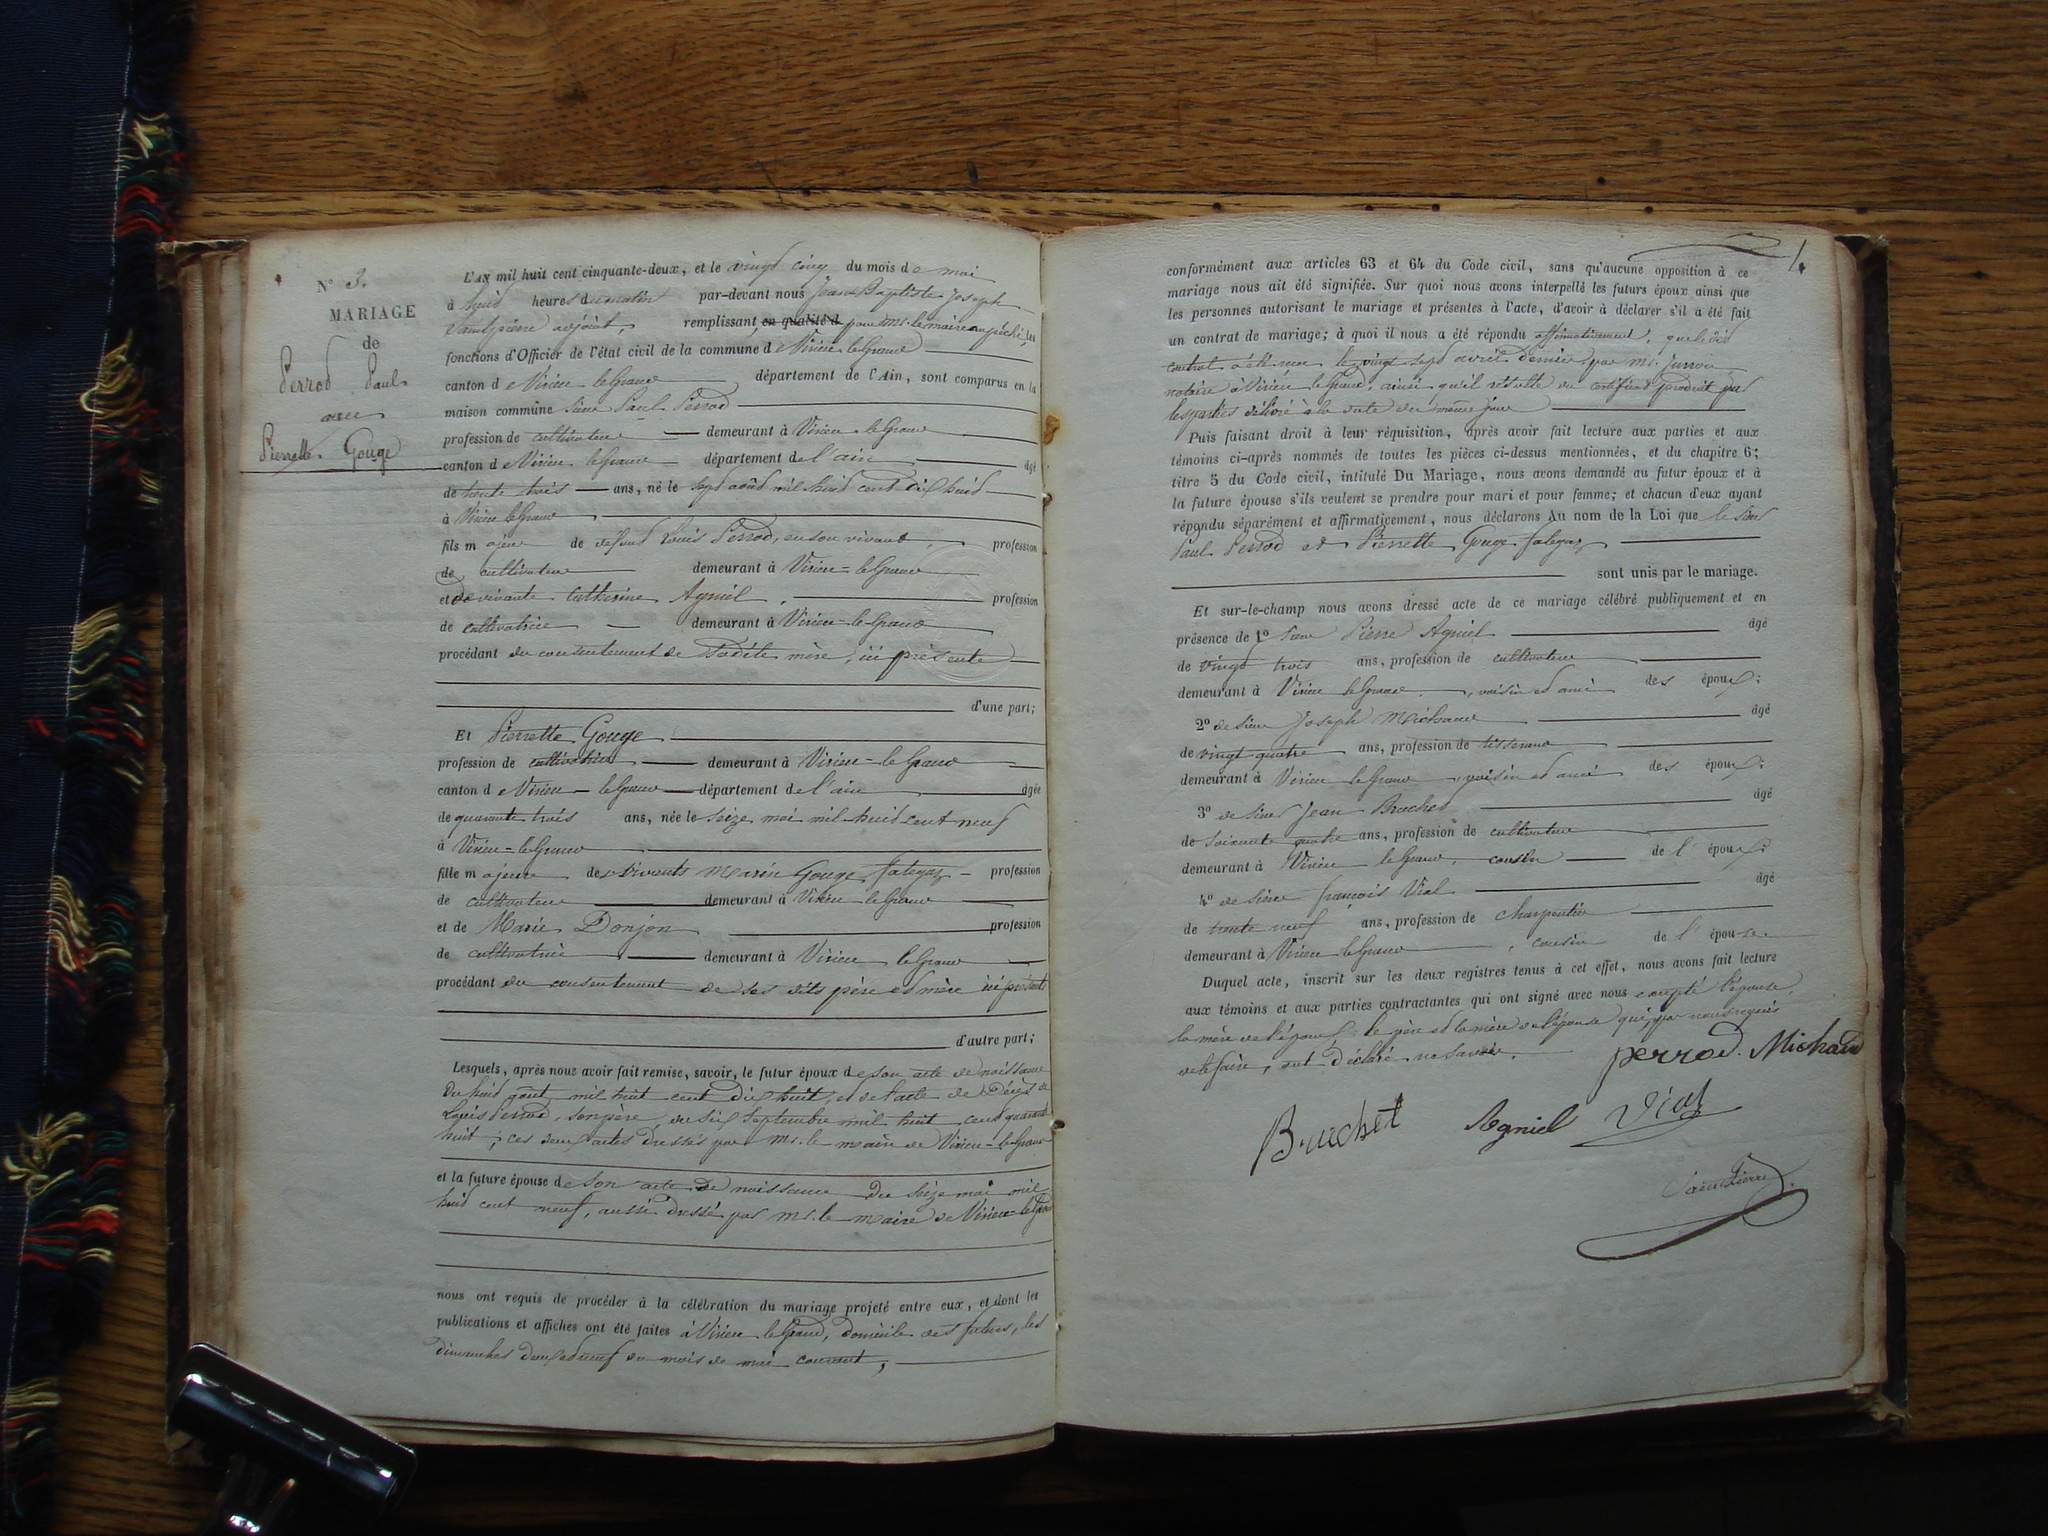 N° 3.
MARIAGE
de
Perrod Paul
avec
Pierrette Gouge
L'AN mil huit cent cinquante-deux, et le vingt cinq du mois de mai
à huit heures du matin par-devant nous Jean Baptiste Joseph
Saintpierre adjoint, remplissant, en qualité d pour Mr. le maire empêché, les
fonctions d'Officier de l'état civil de la commune de Virieu le Grand
canton de Virieu le Grand département de l'Ain, sont comparus en la
maison commune sieur Paul Perrod
profession de cultivateur demeurant à Virieu le Grand
canton de Virieu le Grand département de l'ain âgé
de trente trois ans, né le sept août mil huit cent dix huit
à Virieu le Grand
fils majeur de defunt Louis Perrod, en son vivant, profession
de cultivateur demeurant à Virieu-le Grand
et de vivante Catherine Agniel, profession
de cultivatrice demeurant à Virieu-le Grand
procédant du consentement de sadite mère, ici présente
d'une part;
Et Pierrette Gouge
profession de cultivatrice demeurant à Virieu-le Grand
canton de Virieu-le Grand département de l'ain âgée
de quarante trois ans, née le seize mai mil huit cent neuf
à Virieu-le Grand
fille majeure des vivants Marin Gouge falegaz profession
de cultivateur demeurant à Virieu le Grand
et de Marie Donjon profession
de cultivatrice demeurant à Virieu le Grand
procédant du consentement de ses dits père et mère ici présents
d'autre part;
Lesquels, après nous avoir fait remise, savoir, le futur époux de son acte de naissance
du huit août mil huit cent dix huit, et de l'acte de décès de
Louis Perrod, son père, du six septembre mil huit cent quarante
huit; ces deux actes dressés par Mr. le maire de Virieu-le Grand
et la future épouse de son acte de naissance du seize mai mil
huit cent neuf, aussi dressé par Mr. le maire de Virieu-le Grand
nous ont requis de procéder à la célébration du mariage projeté entre eux, et dont les
publications et affiches ont été faites à Virieu le Grand, domicile des futurs, les
dimanches deux et neuf du mois de mai courant;
conformément aux articles 63 et 64 du Code civil, sans qu'aucune opposition à ce
mariage nous ait été signifiée. Sur quoi nous avons interpellé les futurs époux ainsi que
les personnes autorisant le mariage et présentes à l'acte, d'avoir à déclarer s'il a été fait
un contrat de mariage; à quoi il nous a été répondu affirmativement, que ledit
contrat a été reçu le vingt sept avril dernier par Mr.
notaire à Virieu le Grand, ainsi qu'il résulte du certificat produit par
les parties délivré à la date du même jour
Puis faisant droit à leur réquisition, après avoir fait lecture aux parties et aux
témoins ci-après nommés de toutes les pièces ci-dessus mentionnées, et du chapitre 6;
titre 5 du Code civil, intitulé Du Mariage, nous avons demandé au futur époux et à
la future épouse s'ils veulent se prendre pour mari et pour femme; et chacun d'eux ayant
répondu séparément et affirmativement, nous déclarons Au nom de la Loi que le sieur
Paul Perrod et Pierrette Gouge falegaz
sont unis par le mariage.
Et sur-le-champ nous avons dressé acte de ce mariage célébré publiquement et en
présence de 1° sieur Pierre Agniel âgé
de vingt trois ans, profession de cultivateur
demeurant à Virieu le Grand, voisin et ami des époux;
2° de sieur Joseph Michaud âgé
de vingt quatre ans, profession de tisserand
demeurant à Virieu le Grand, voisin et ami des époux;
3° de sieur Jean Bruchet âgé
de soixante quatre ans, profession de cultivateur
demeurant à Virieu le Grand, cousin de l'époux;
4° de sieur françois Vial âgé
de trente neuf ans, profession de charpentier
demeurant à Virieu le Grand, cousin de l'épouse
Duquel acte, inscrit sur les deux registres tenus à cet effet, nous avons fait lecture
aux témoins et aux parties contractantes qui ont signé avec nous excepté l'épouse,
la mère de l'époux, le père et la mère de l'épouse qui, par nous requis
de le faire, ont déclaré ne savoir.
perrod. Michaud
Bruchet Agniel Vial
Saintpierre